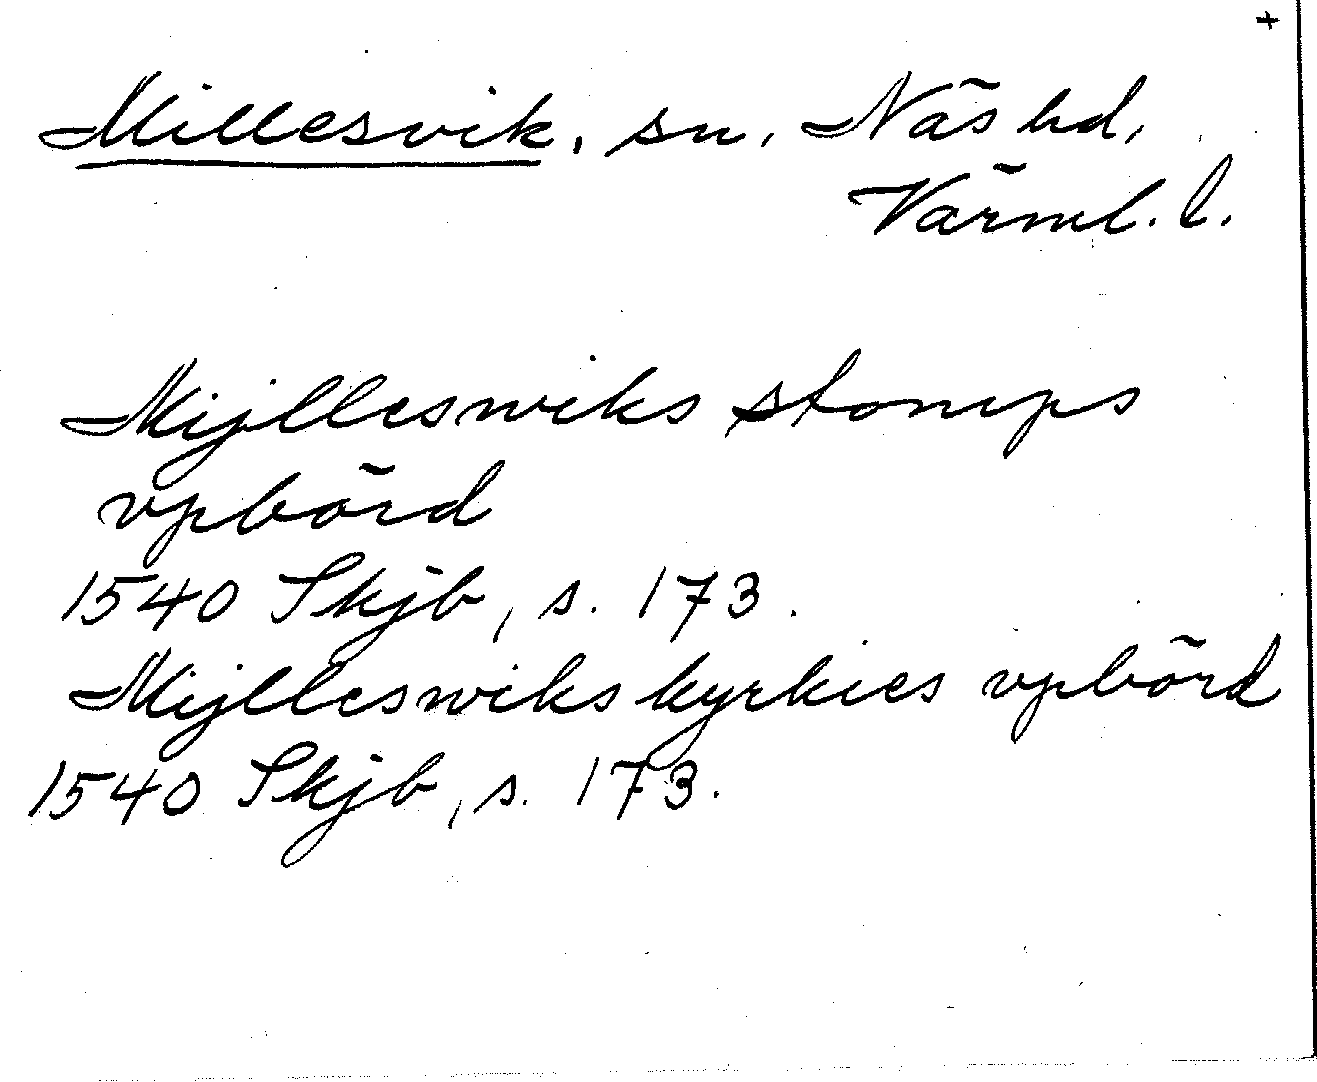 +
Millesvik, sn, Näs hd,
Värml. l.
Mijlleswiks stomps
vpbörd
1540 Skjb, s. 173.
Mijlleswiks kyrkies vpbörd
1540 Skjb, s. 173.